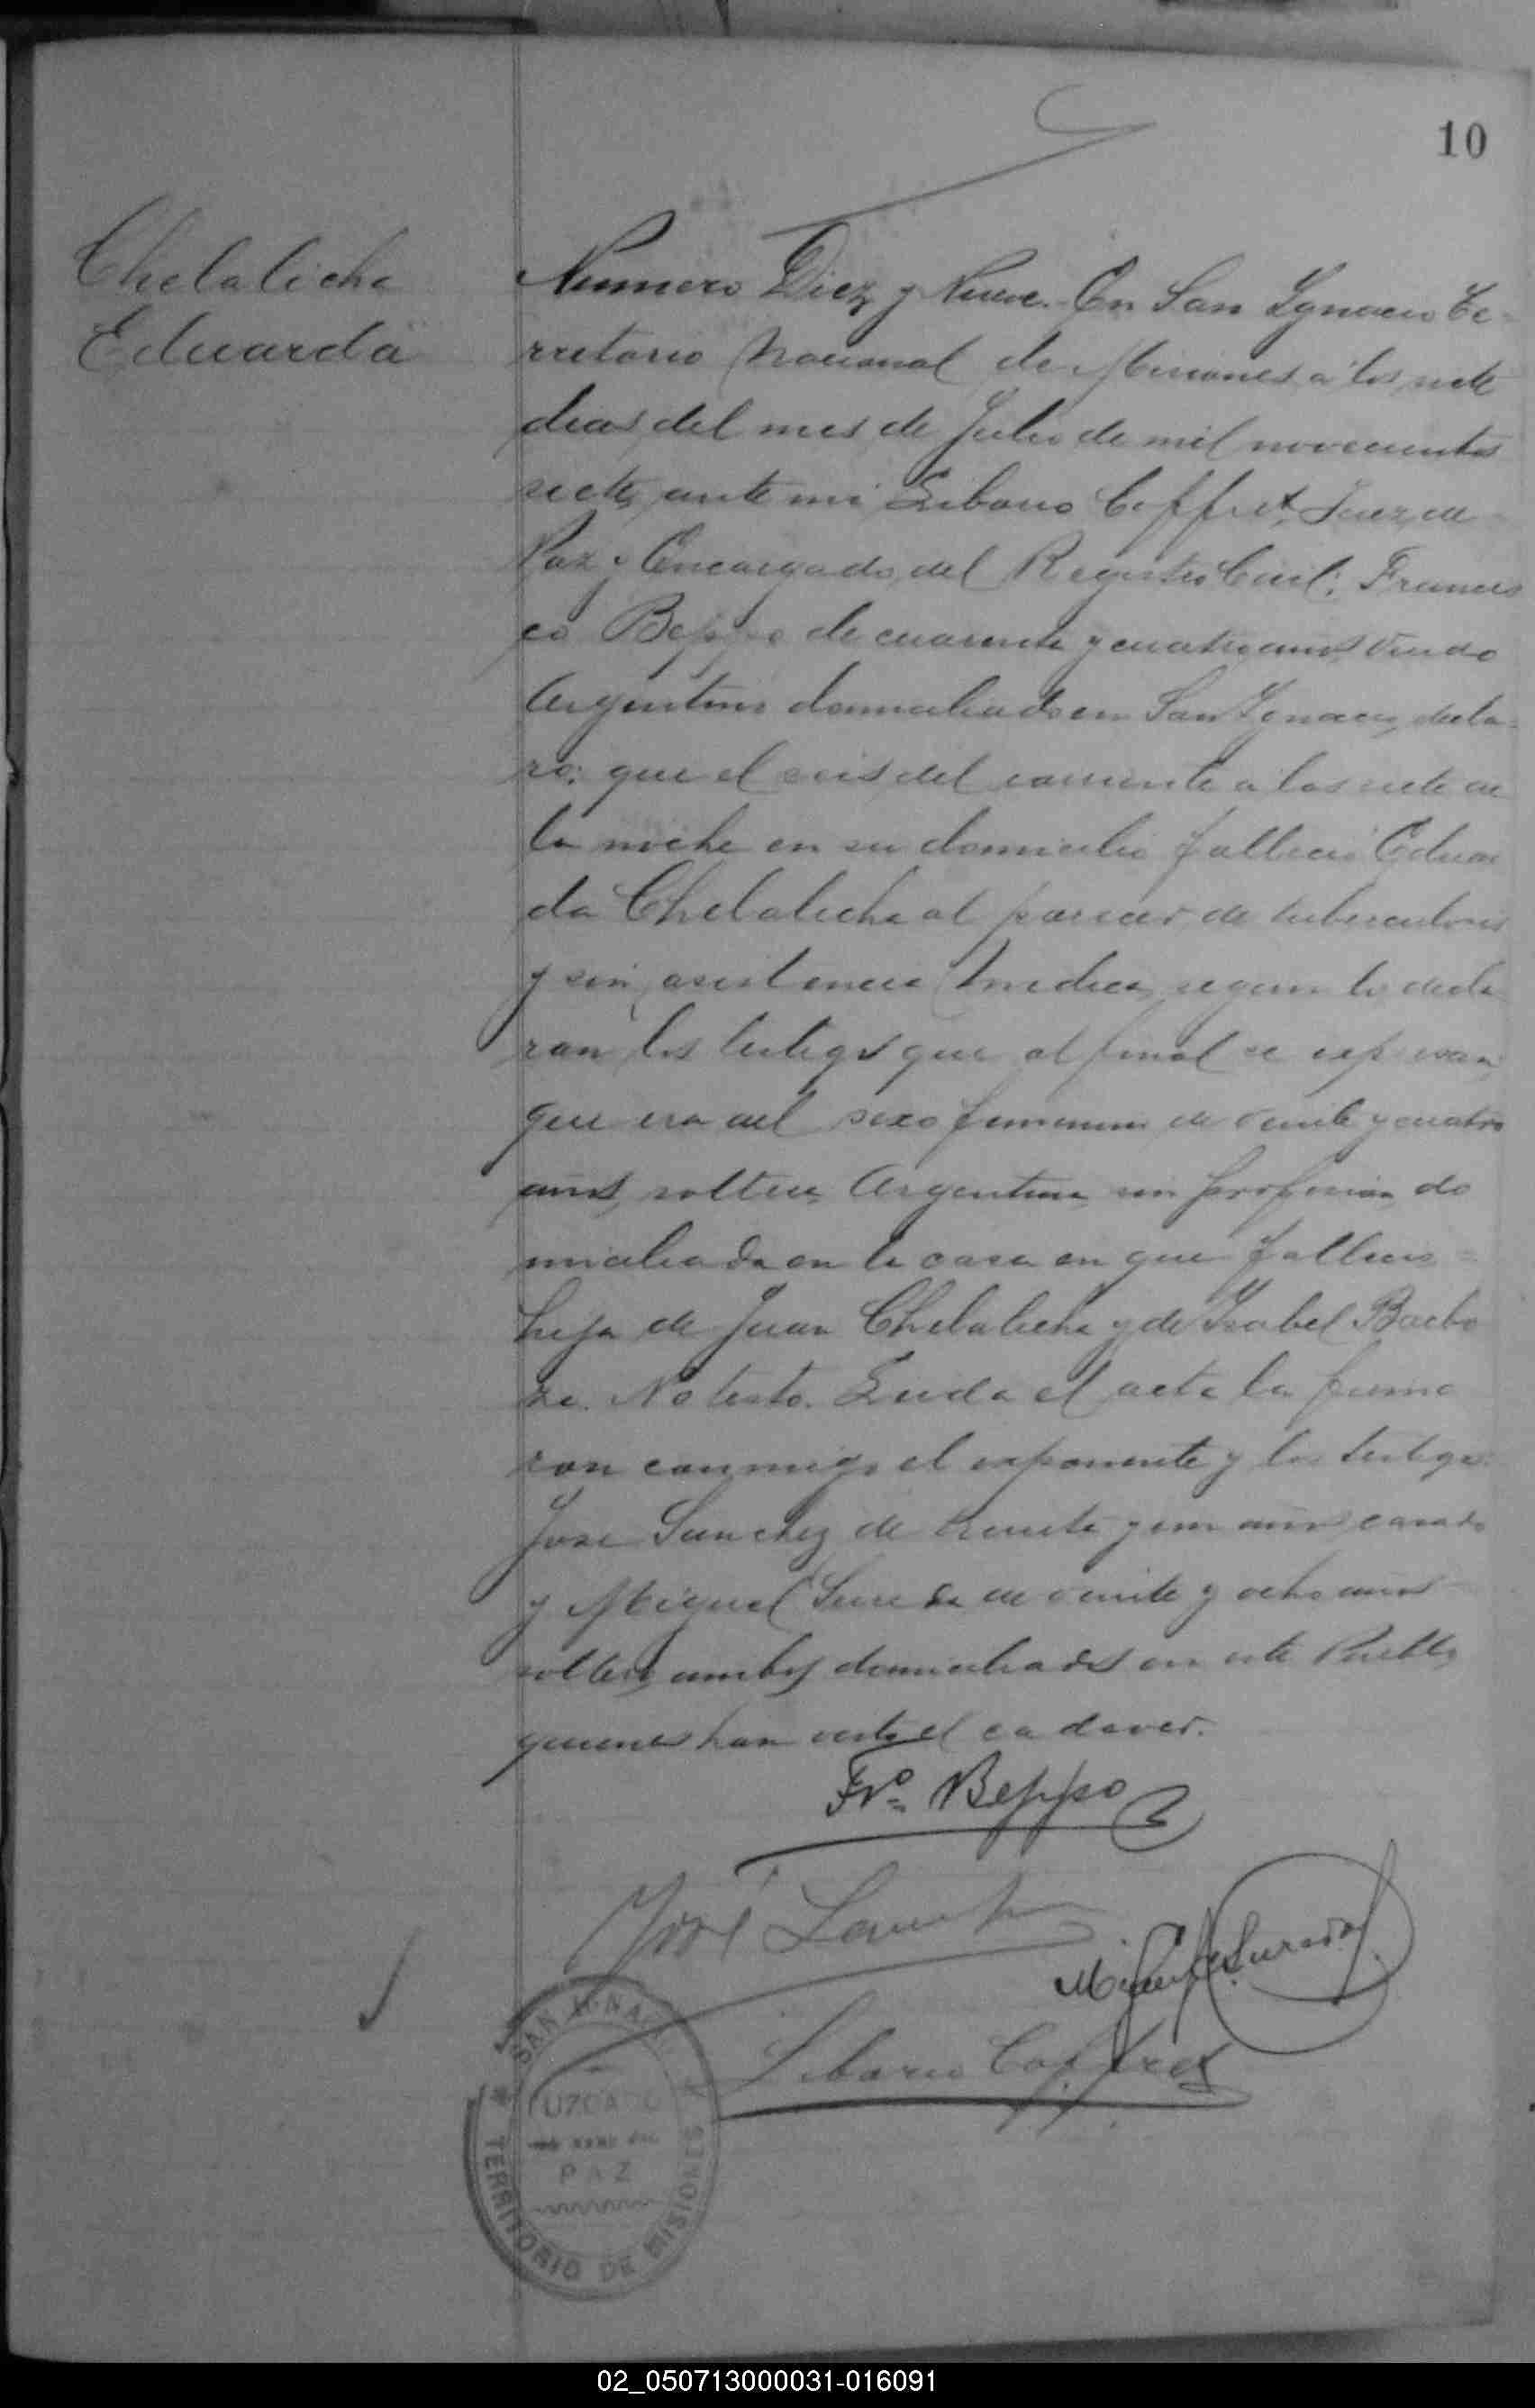 10
Chelaliche
Eduarda
Numero Diez y Nueve.- En San Ygnacio Te-
rritorio Nacional de Misiones a los siete
dias del mes de Julio de mil novecientos
siete, ante mi Libario Coffret, Juez de
Paz y Encargado del Registro Civil: Francis
co Beppo de cuarenta y cuatro años, viudo
Argentino domiciliado en San Ygnacio, decla-
ro: que el seis del corriente a las siete de
la noche en su domicilio fallecio Eduar
da Chelaliche al parecer de tuberculosis
y sin asistencia medica, segun lo decla
ran los testigos que al final se espresan,
que era del sexo femenino de veinte y cuatro
años, soltera, Argentina, sin profesion, do
miciliada en la casa en que fallecio
hija de Juan Chelaliche y de Isabel Barbo
za. No testo. Leida el acta la firma
ron conmigo el exponente y los testigos
Jose Sanchez de treinta y un años casado
y Miguel de veinte y ocho años
soltero, ambos domiciliados en este Pueblo,
quienes han visto el cadaver.
Frº Beppo
José
Miguel
Libario Coffret
SAN IGNACIO
JUZGADO
PAZ
TERRITORIO DE MISIONES
02_050713000031-016091